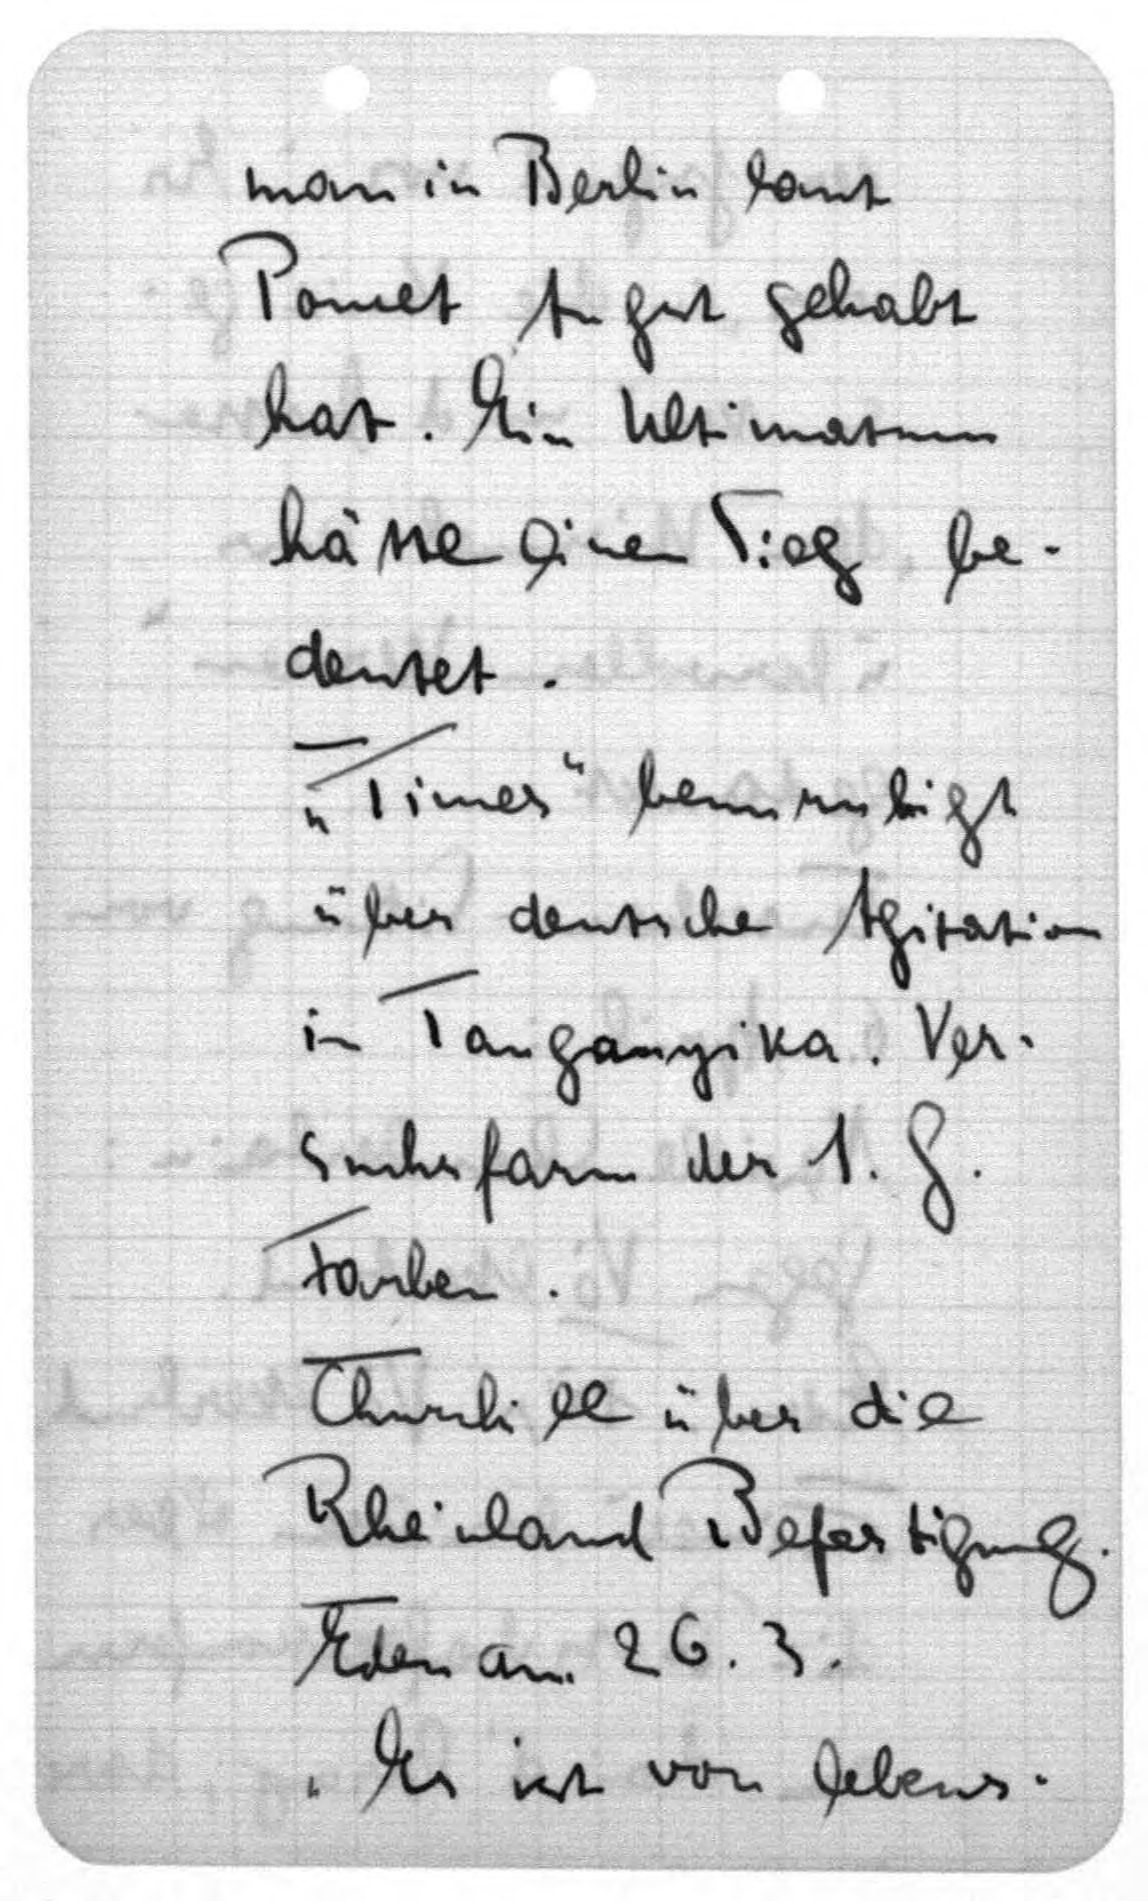 man in Berlin laut
Poncet Angst gehabt
hat. Ein Ultimatum
hätte einen Sieg be-
deutet.
„Times" beunruhigt
über deutsche Agitation
in Tanganyika. Ver-
suchsfarm der I. G.
Farben.
Churchill über die
Rheinland Befestigung.
Eden am 26. 3.
„Es ist von lebens-